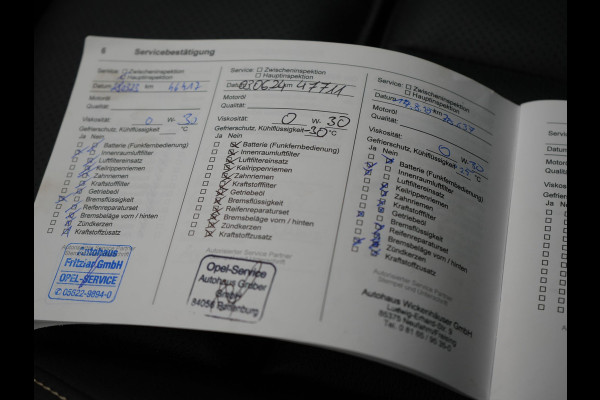 6 Servicebestätigung
Service: Zwischeninspektion
Hauptinspektion
Datum km 46417
Motoröl
Qualität:
Viskosität: 0 W- 30
Gefrierschutz, Kühlflüssigkeit °C
Ja Nein
Batterie (Funkfernbedienung)
Innenraumluftfilter
Luftfiltereinsatz
Keilrippenriemen
Zahnriemen
Kraftstofffilter
Getriebeöl
Bremsflüssigkeit
Reifenreparaturset
Bremsbeläge vorn / hinten
Zündkerzen
Kraftstoffzusatz
Autohaus
GmbH
OPEL-SERVICE
✆ 05822-9894-0
Service: Zwischeninspektion
Hauptinspektion
Datum 030624 km 47711
Motoröl
Qualität:
Viskosität: 0 W- 30
Gefrierschutz, Kühlflüssigkeit -30 °C
Ja Nein
Batterie (Funkfernbedienung)
Innenraumluftfilter
Luftfiltereinsatz
Keilrippenriemen
Zahnriemen
Kraftstofffilter
Getriebeöl
Bremsflüssigkeit
Reifenreparaturset
Bremsbeläge vorn / hinten
Zündkerzen
Kraftstoffzusatz
Autorisierter Service Partner
Opel-Service
Autohaus Gruber
GmbH
84056 Rottenburg
Service: Zwischeninspektion
Hauptinspektion
Datum km
Motoröl
Qualität:
Viskosität: 0 W- 30
Gefrierschutz, Kühlflüssigkeit °C
Ja Nein
Batterie (Funkfernbedienung)
Innenraumluftfilter
Luftfiltereinsatz
Keilrippenriemen
Zahnriemen
Kraftstofffilter
Getriebeöl
Bremsflüssigkeit
Reifenreparaturset
Bremsbeläge vorn / hinten
Zündkerzen
Kraftstoffzusatz
Autorisierter Service Partner
Stempel und Unterschrift
Autohaus Wickenhäuser GmbH
Ludwig-Erhard-Str. 9
85375 Neufahrn/Freising
Datum
Motoröl
Ja Nein